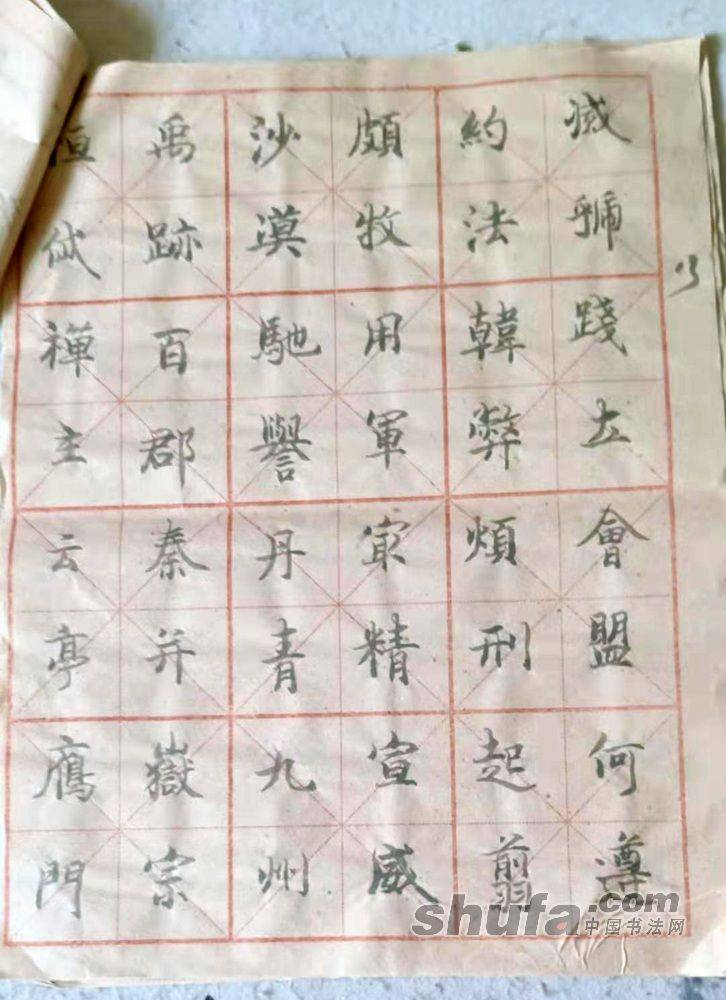 滅虢踐土會盟何遵
約法韓弊煩刑起翦
頗牧用軍冣精宣威
沙漠馳譽丹青九州
禹跡百郡秦并嶽宗
恒岱禪主云亭鴈門
shufa.com
中国书法网